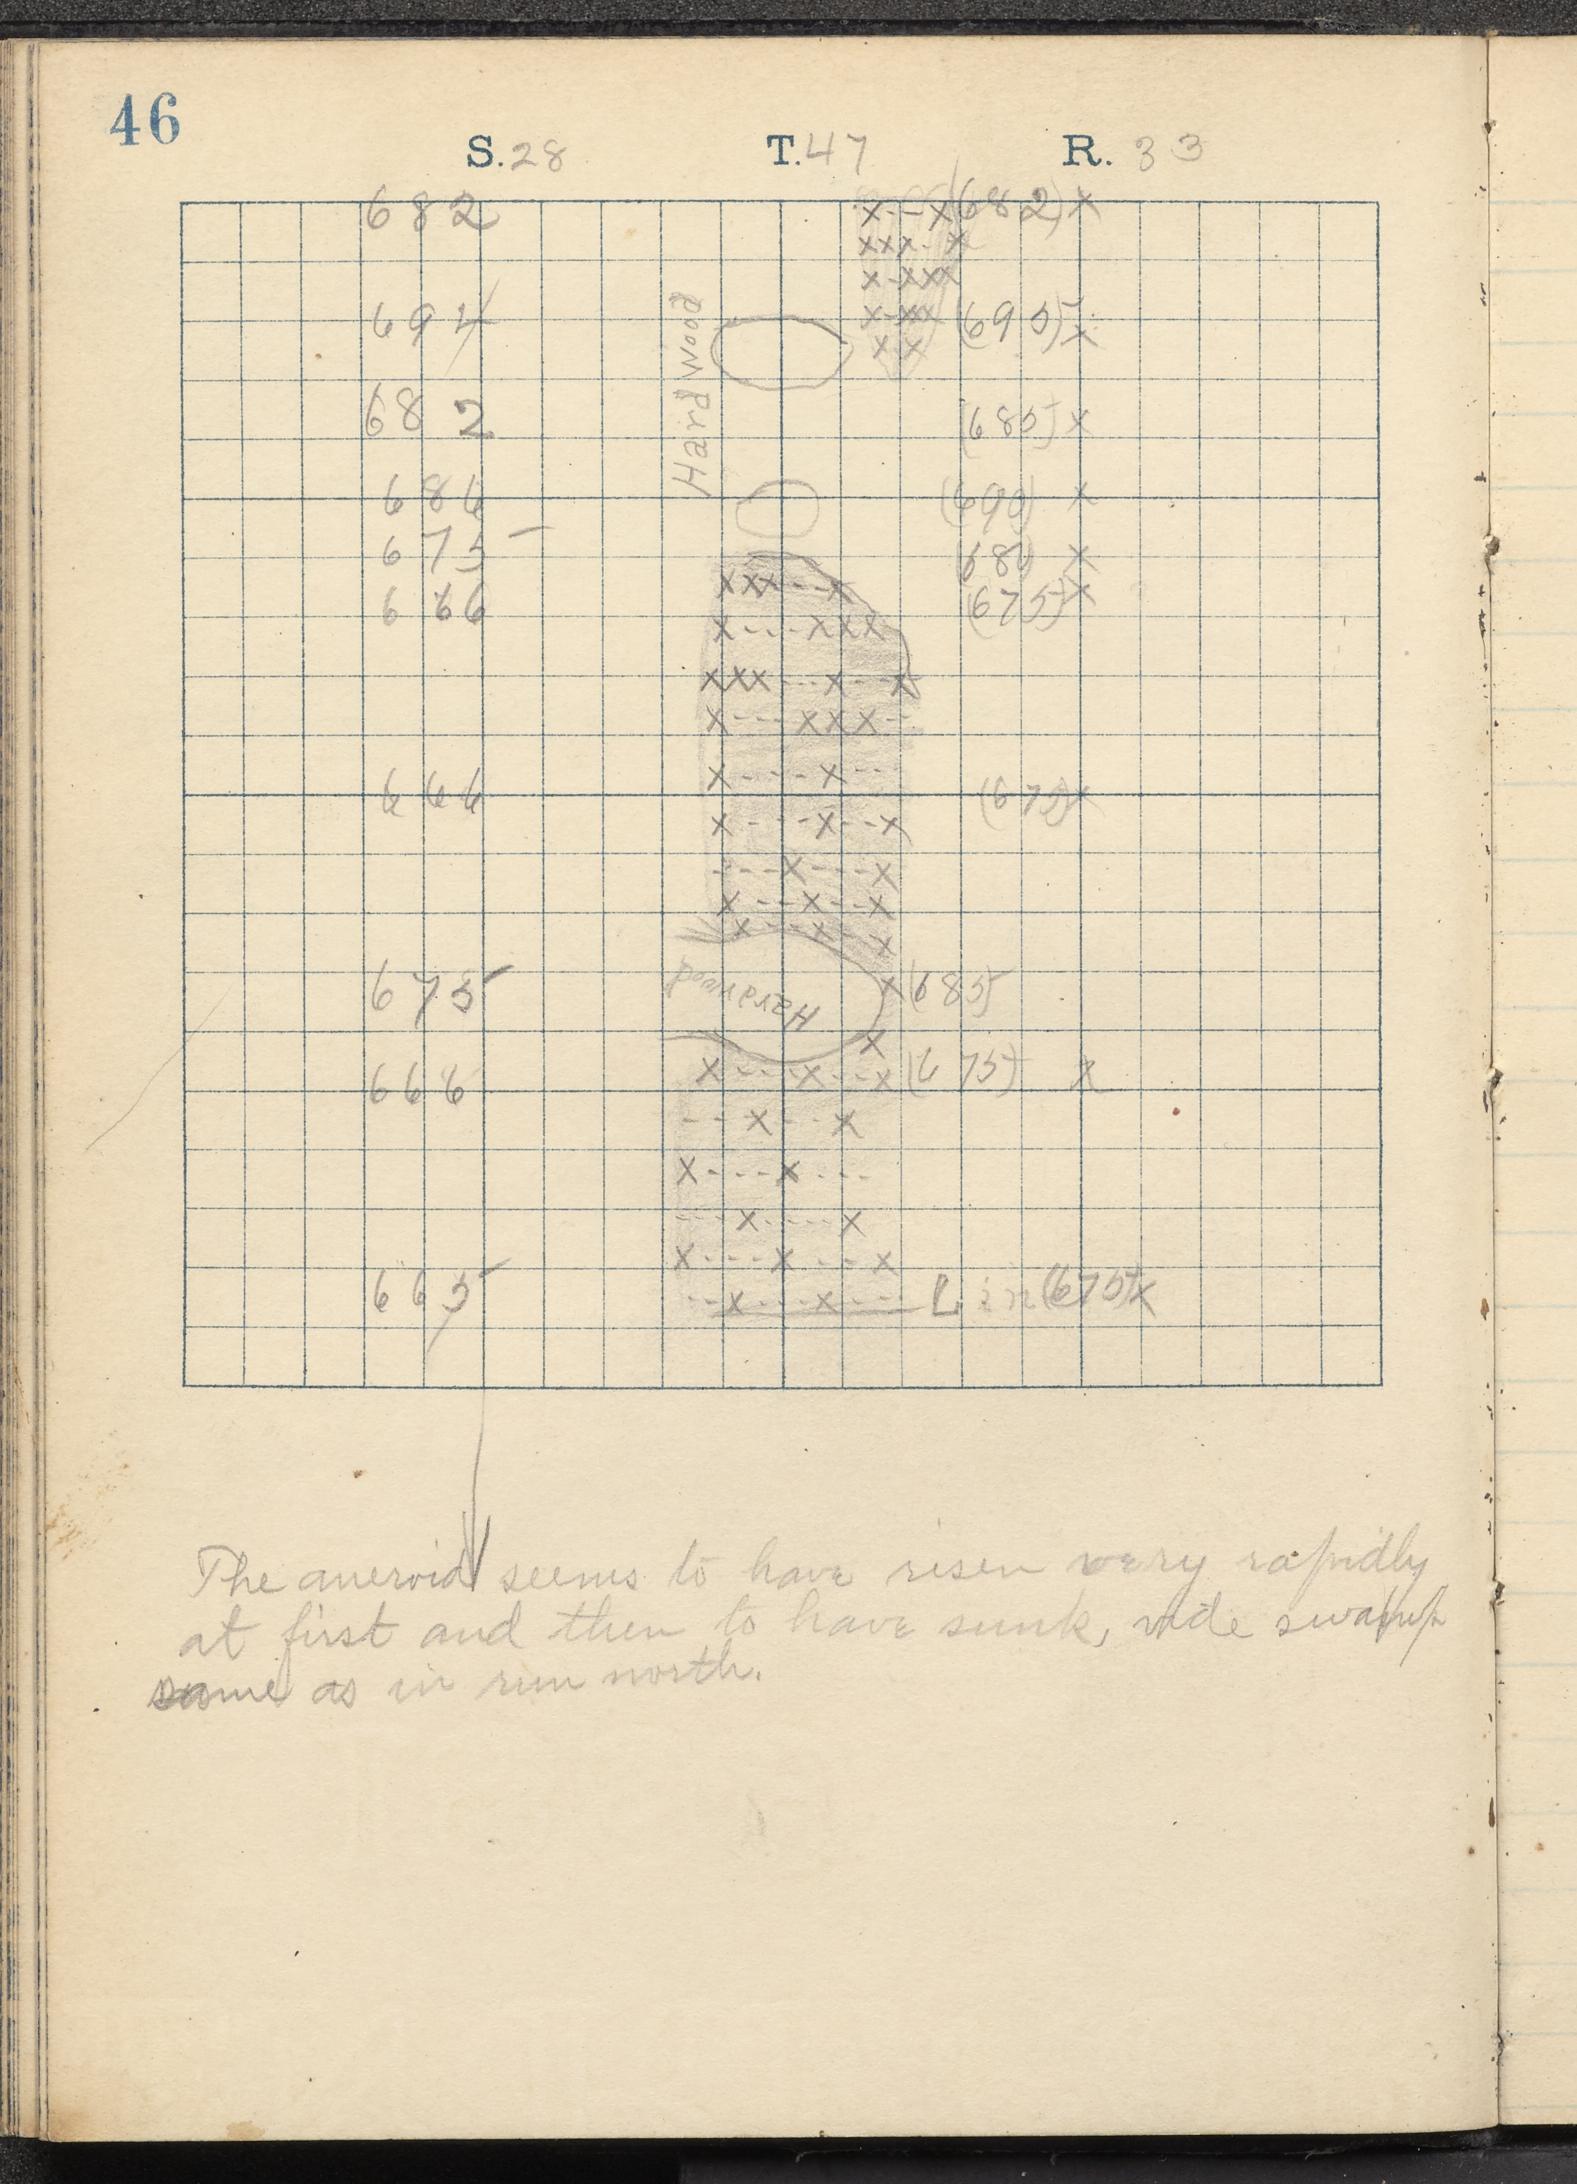 46
S. 28 T. 47 R. 33
682 (682) x
694 (695) x
Hard wood
682 (685) x
686 (690) x
675 (680) x
666 (675) x
666 (675) x
Hardwood
675 (685)
666 (675) x
665 Lin (675) x
The aneroid seems to have risen very rapidly
at first and then to have sunk, vide swamp
same as in run north.